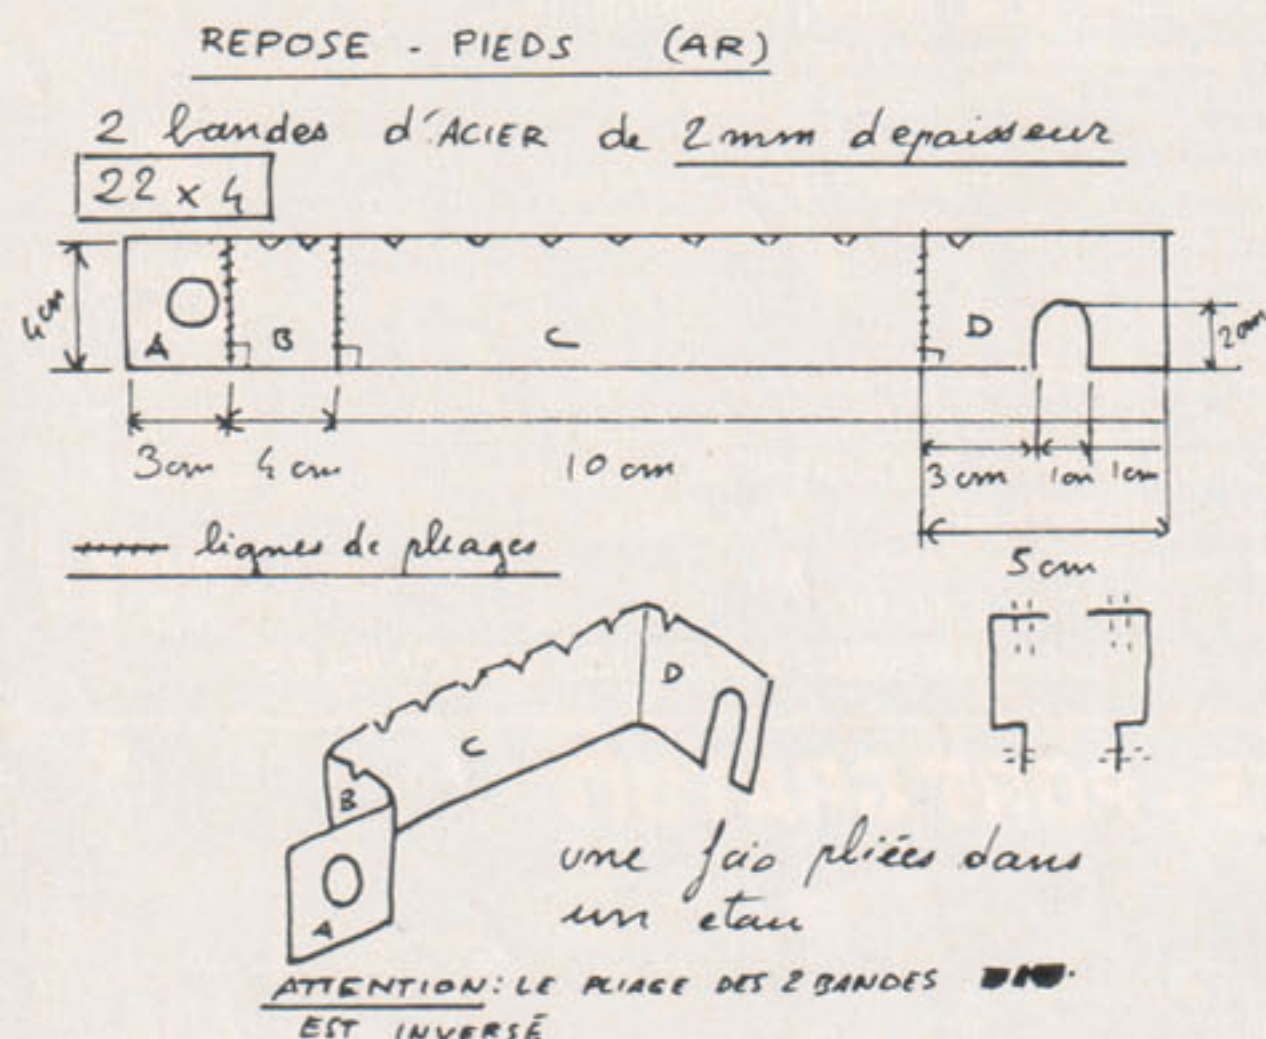 REPOSE - PIEDS (AR)
2 bandes d'ACIER de 2mm d epaisseur
22 x 4
4 cm
A
B
C
D
2 cm
3 cm 4 cm 10 cm 3 cm 1 cm 1 cm
lignes de pleages
5 cm
D
C
B
A
une fois pliées dans
un etau
ATTENTION: LE PLIAGE DES 2 BANDES
EST INVERSÉ